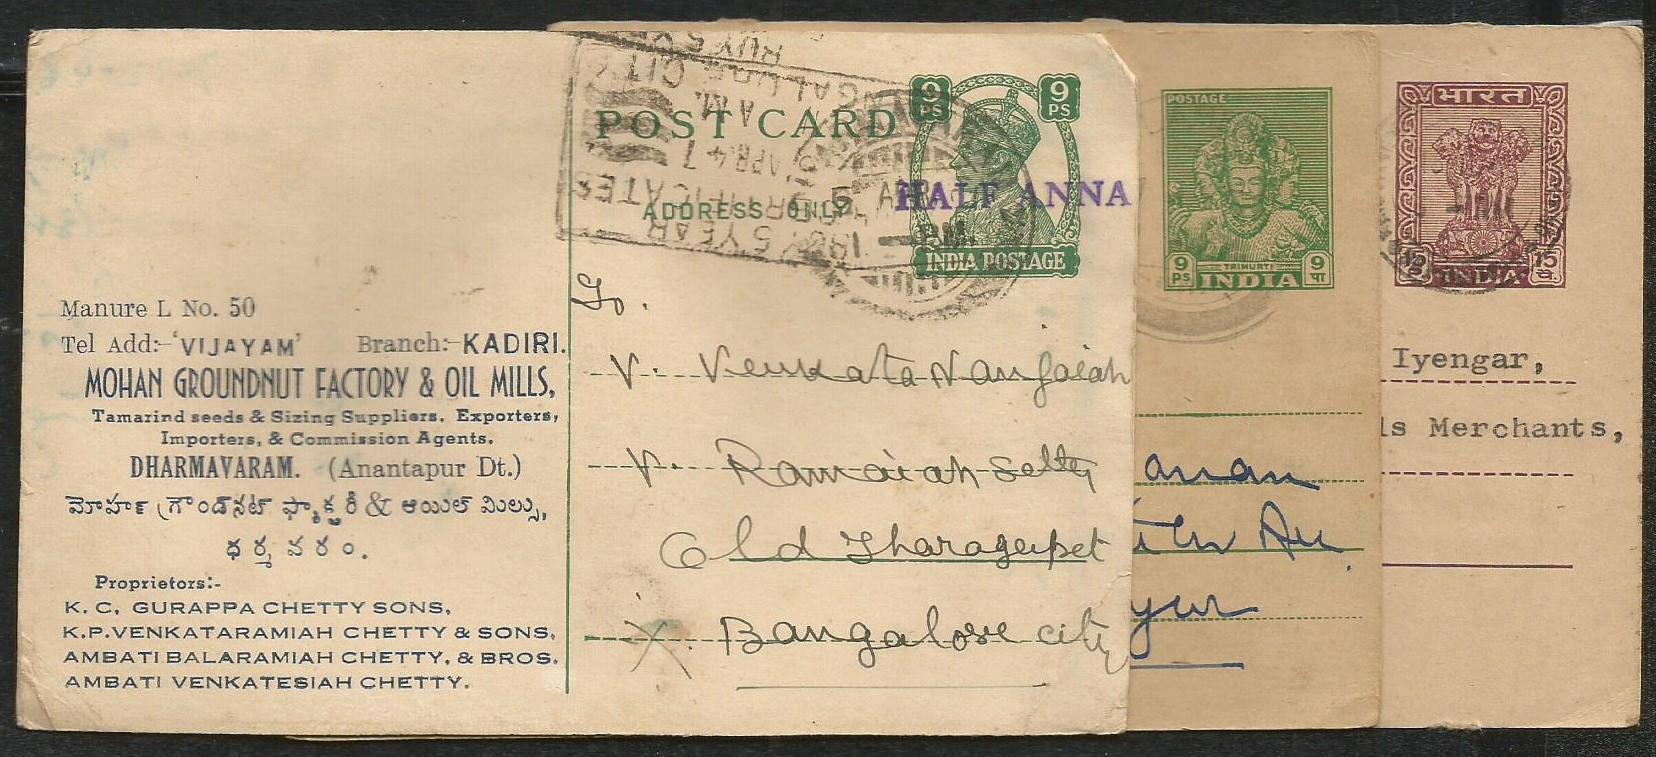 Manure L No. 50
Tel Add:- 'VIJAYAM' Branch:- KADIRI.
MOHAN GROUNDNUT FACTORY & OIL MILLS,
Tamarind seeds & Sizing Suppliers, Exporters,
Importers, & Commission Agents.
DHARMAVARAM. (Anantapur Dt.)
మోహన్ గ్రౌండ్‌నట్ ఫ్యాక్టరీ & ఆయిల్ మిల్సు,
ధర్మవరం.
Proprietors:-
K. C. GURAPPA CHETTY SONS,
K.P.VENKATARAMIAH CHETTY & SONS,
AMBATI BALARAMIAH CHETTY, & BROS.
AMBATI VENKATESIAH CHETTY.
POST CARD
ADDRESS ONLY
9 PS 9 PS
HALF ANNA
INDIA POSTAGE
5 YEAR
APR 47
To.
V. Venkata Nangaiah
V. Ramaiah Setty
Old Tharagupet
X. Bangalore city
POSTAGE
9 PS TRIMURTI 9 पा
INDIA
anan
yur
भारत
15 पै.
INDIA
Iyengar,
ls Merchants,